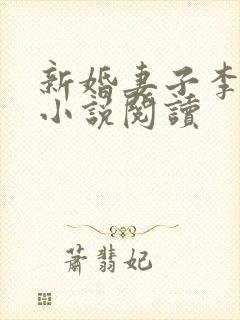 新婚妻子李
小說閱讀
蕭翡妃